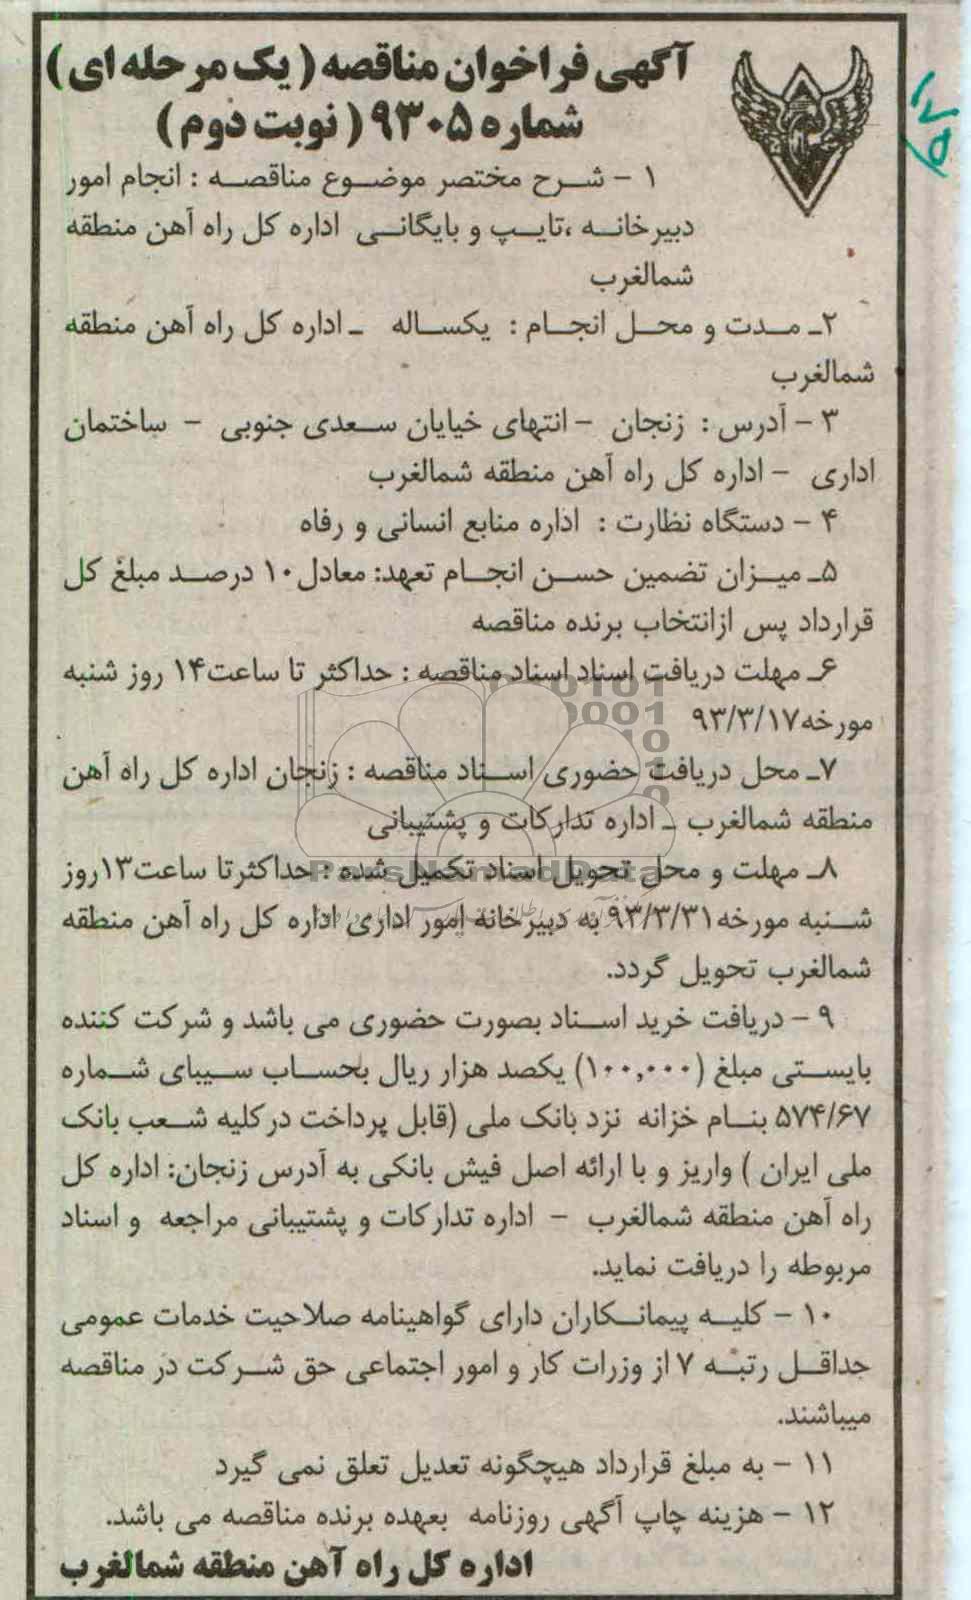 آگهی فراخوان مناقصه ( یک مرحله ای )
شماره ۹۳۰۵ ( نوبت دوم )
۱ - شرح مختصر موضوع مناقصه : انجام امور
دبیرخانه ،تایپ و بایگانی اداره کل راه آهن منطقه
شمالغرب
۲ـ مدت و محل انجام : یکساله ـ اداره کل راه آهن منطقه
شمالغرب
۳ - آدرس : زنجان - انتهای خیابان سعدی جنوبی - ساختمان
اداری - اداره کل راه آهن منطقه شمالغرب
۴ - دستگاه نظارت : اداره منابع انسانی و رفاه
۵ـ میزان تضمین حسن انجام تعهد: معادل۱۰ درصد مبلغ کل
قرارداد پس ازانتخاب برنده مناقصه
۶ـ مهلت دریافت اسناد اسناد مناقصه : حداکثر تا ساعت۱۴ روز شنبه
مورخه۹۳/۳/۱۷
۷ـ محل دریافت حضوری اسناد مناقصه : زنجان اداره کل راه آهن
منطقه شمالغرب ـ اداره تدارکات و پشتیبانی
۸ـ مهلت و محل تحویل اسناد تکمیل شده : حداکثرتا ساعت۱۳روز
شنبه مورخه۹۳/۳/۳۱ به دبیرخانه امور اداری اداره کل راه آهن منطقه
شمالغرب تحویل گردد.
۹ - دریافت خرید اسناد بصورت حضوری می باشد و شرکت کننده
بایستی مبلغ (۱۰۰,۰۰۰) یکصد هزار ریال بحساب سیبای شماره
۵۷۴/۶۷ بنام خزانه نزد بانک ملی (قابل پرداخت درکلیه شعب بانک
ملی ایران ) واریز و با ارائه اصل فیش بانکی به آدرس زنجان: اداره کل
راه آهن منطقه شمالغرب - اداره تدارکات و پشتیبانی مراجعه و اسناد
مربوطه را دریافت نماید.
۱۰ - کلیه پیمانکاران دارای گواهینامه صلاحیت خدمات عمومی
حداقل رتبه ۷ از وزرات کار و امور اجتماعی حق شرکت در مناقصه
میباشند.
۱۱ - به مبلغ قرارداد هیچگونه تعدیل تعلق نمی گیرد
۱۲ - هزینه چاپ آگهی روزنامه بعهده برنده مناقصه می باشد.
اداره کل راه آهن منطقه شمالغرب
ParsNamadData